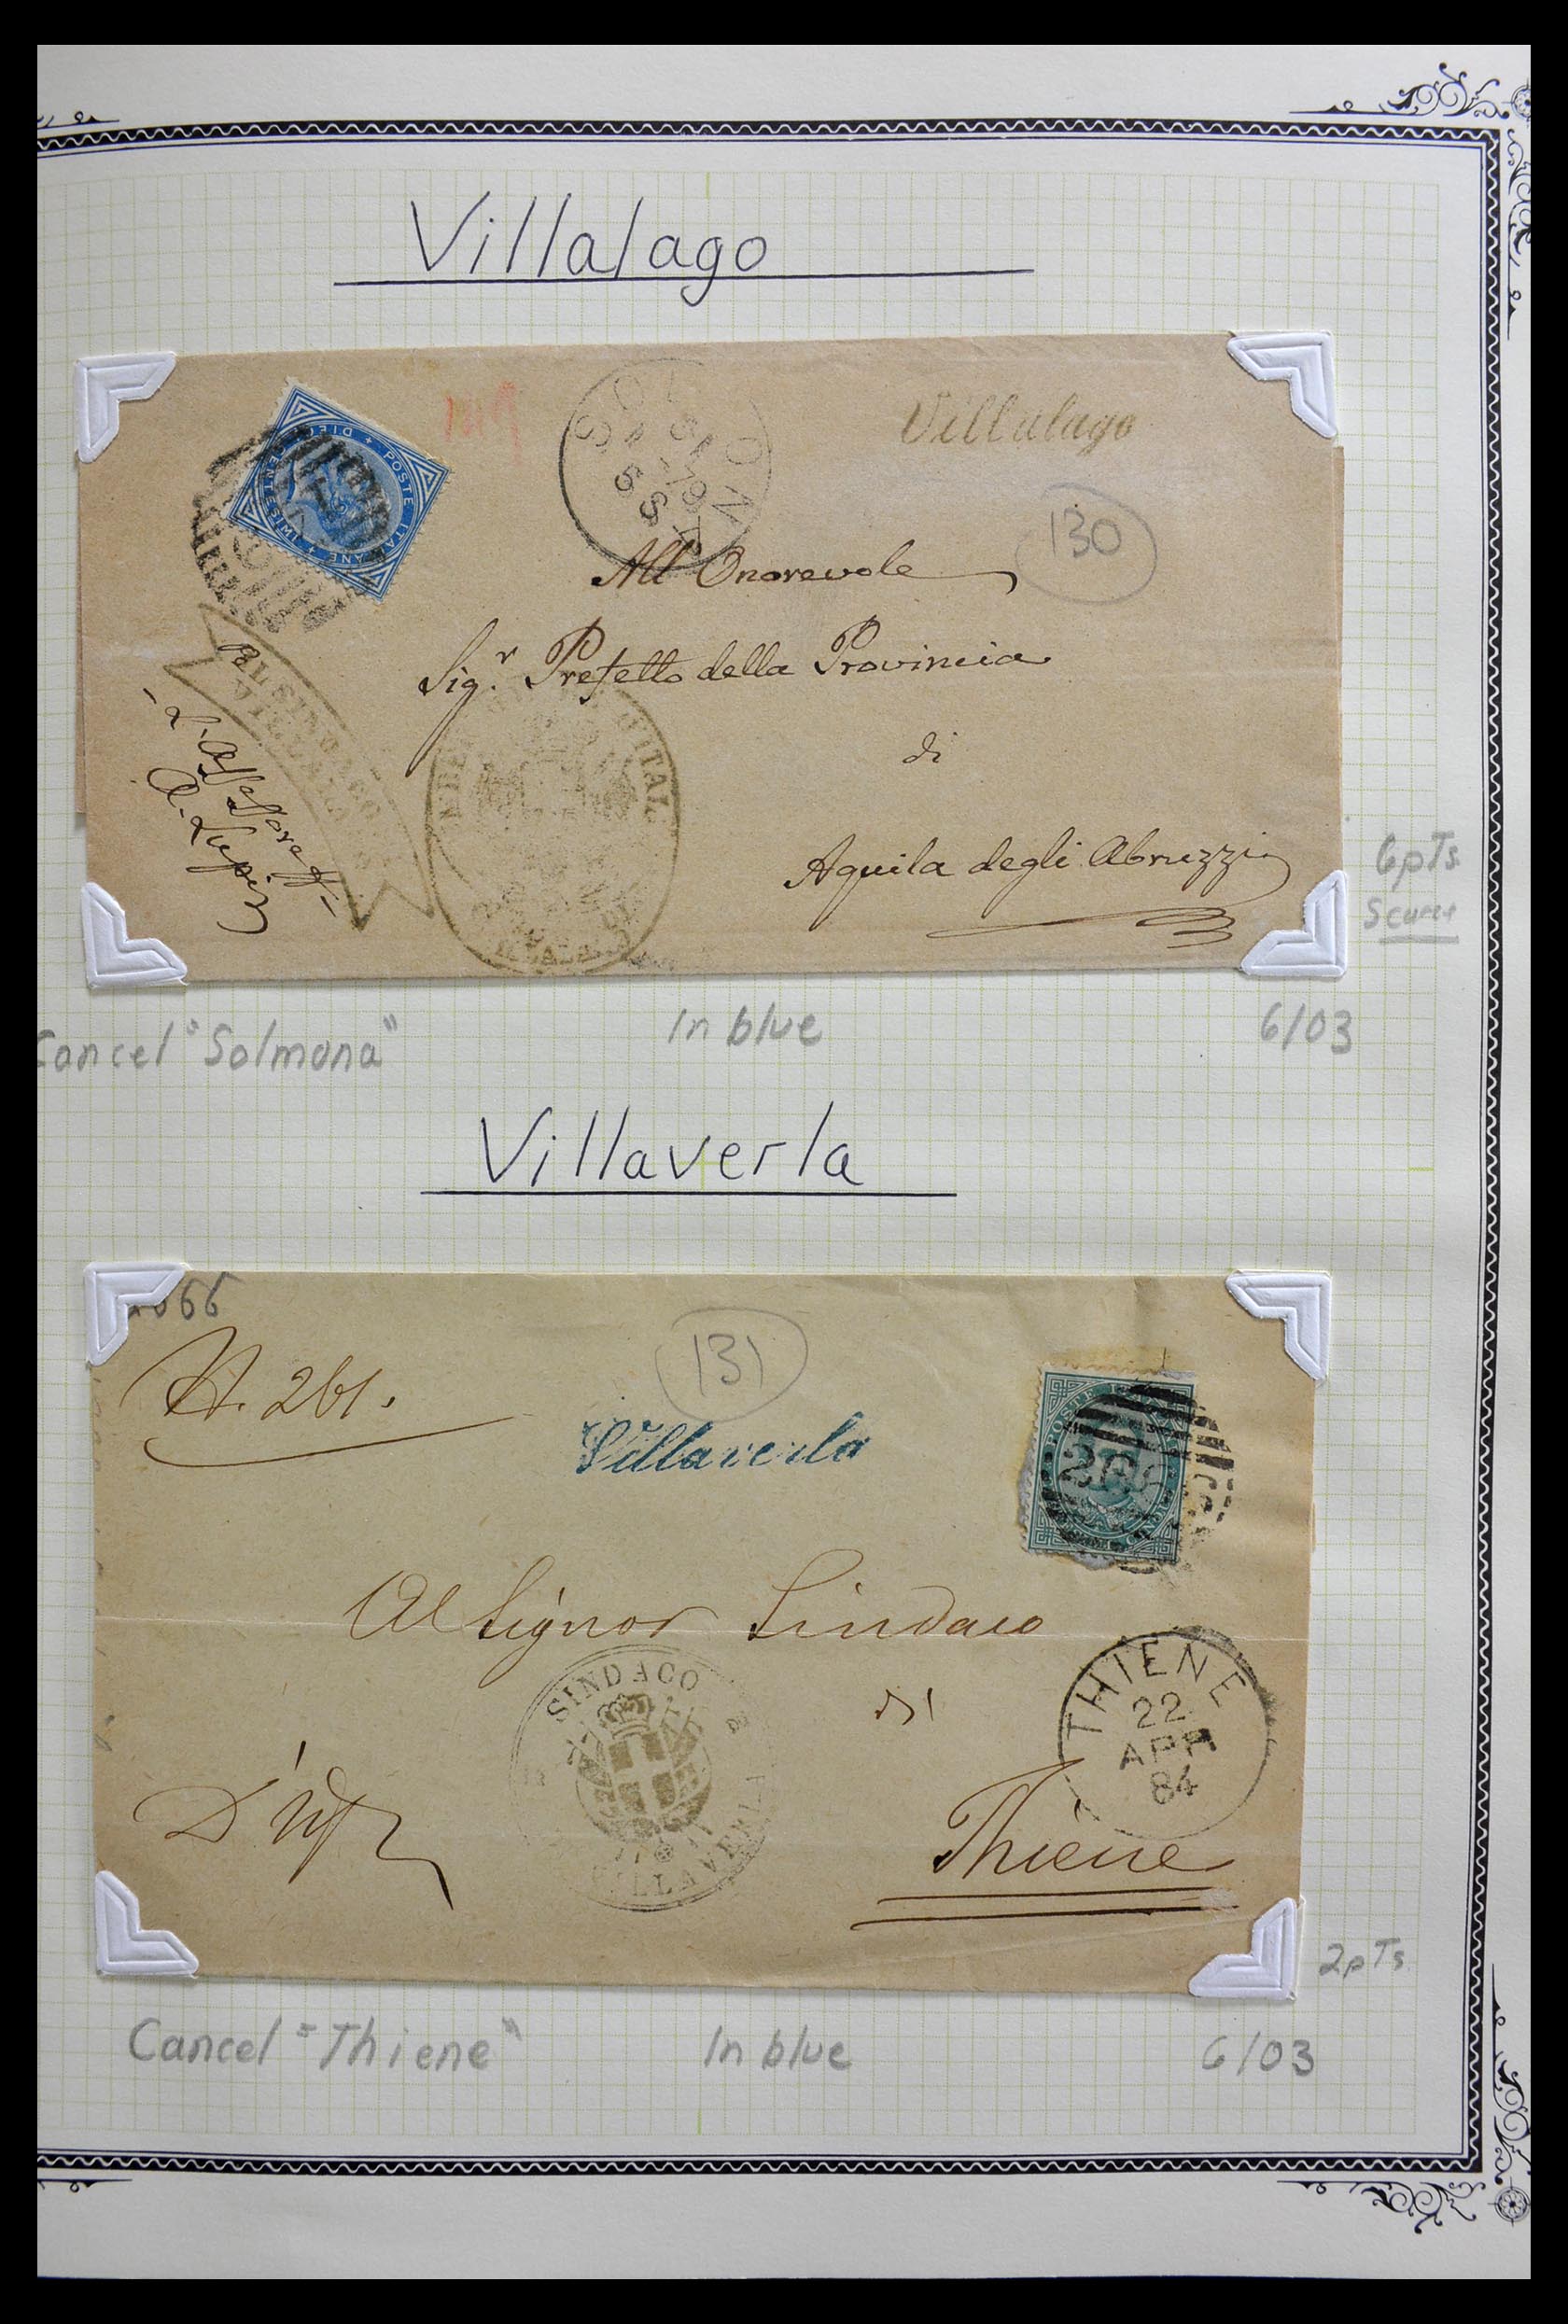 Villalago
POSTE ITALIANE + DIECI CENTESIMI +
Villalago
130
All' Onorevole
Sig.r Prefetto della Provincia
di
Aquila degli Abruzzi
IL SINDACO
L'Assessore
D'ITALIA
6pTs
Scarce
Cancel "Solmona"
In blue
6/03
Villaverla
131
N. 261.
Villaverla
POSTE
Al Signor Sindaco
di
Thiene
THIENE
22
APR
84
SINDACO
VILLAVERLA
2pTs
Cancel "Thiene"
In blue
6/03